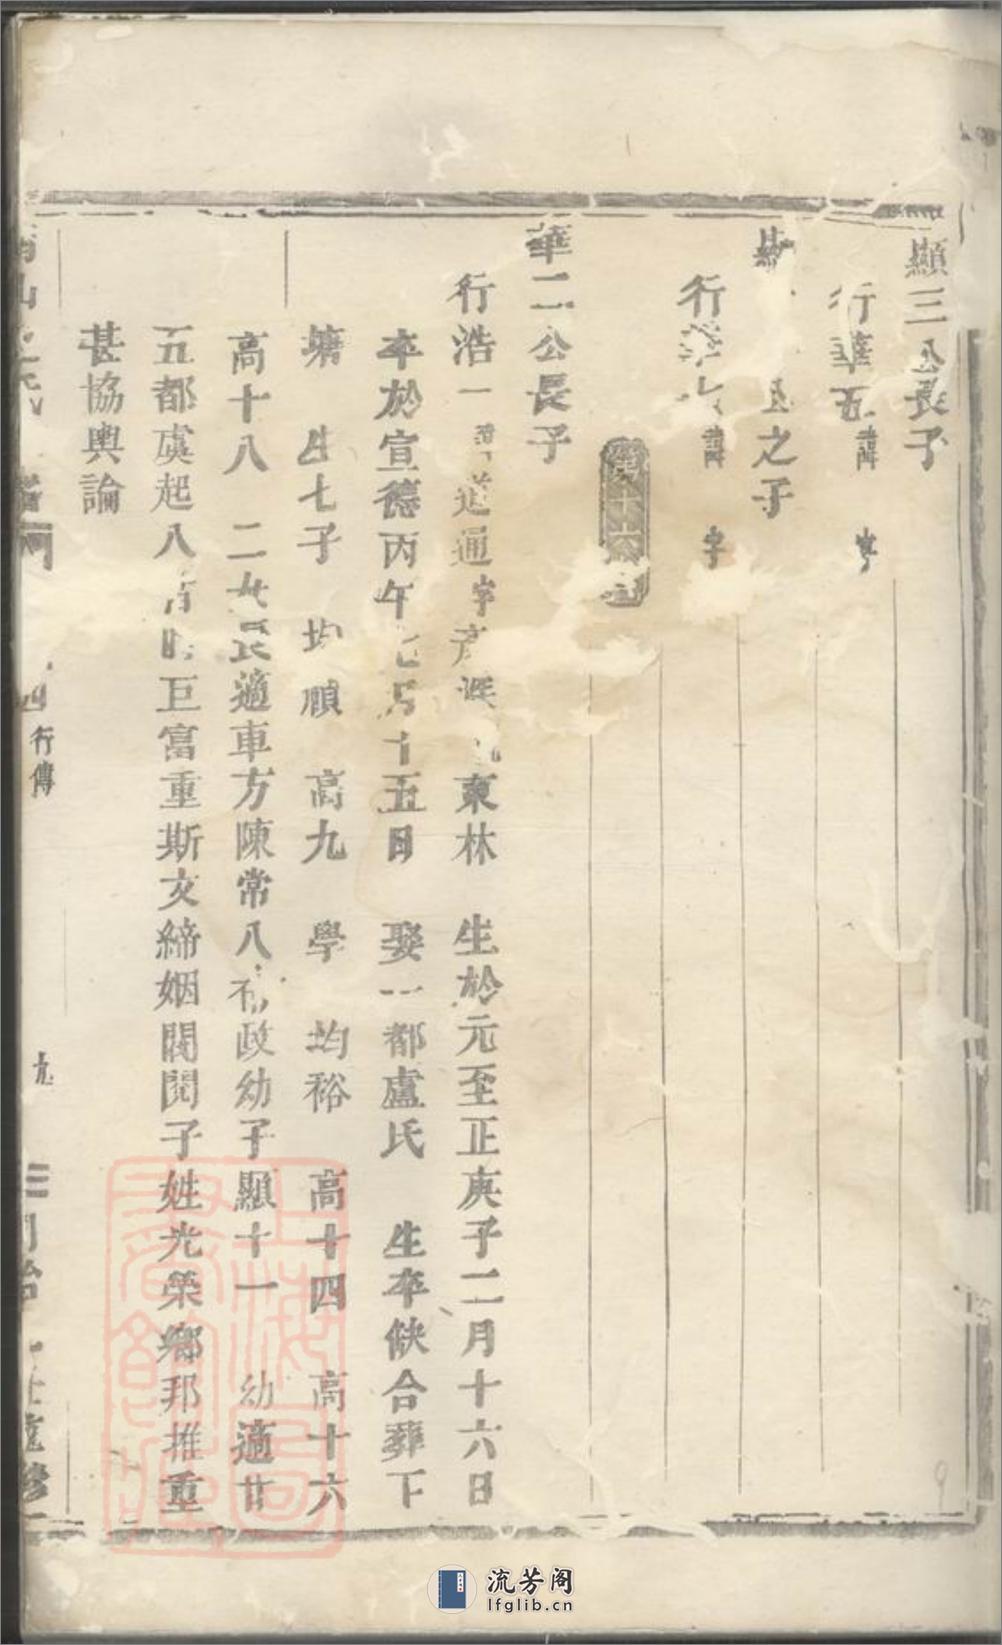 顯三公長子
行華五諱 字
顯 之子
行華 諱 字
第十六世
華二公長子
行浩一諱道通字彥 東林 生於元至正庚子二月十六日
卒於宣德丙午七月十五日 娶一都盧氏 生卒缺合葬下
塘 生七子 均順 高九 學 均裕 高十四 高十六
高十八 二女長適車方陳常八 政幼子顯十一 幼適廿
五都虞起八 時巨富重斯文締姻閥閱子姓光榮鄉邦推重
甚協輿論
行傳
九
流芳阁
lfglib.cn